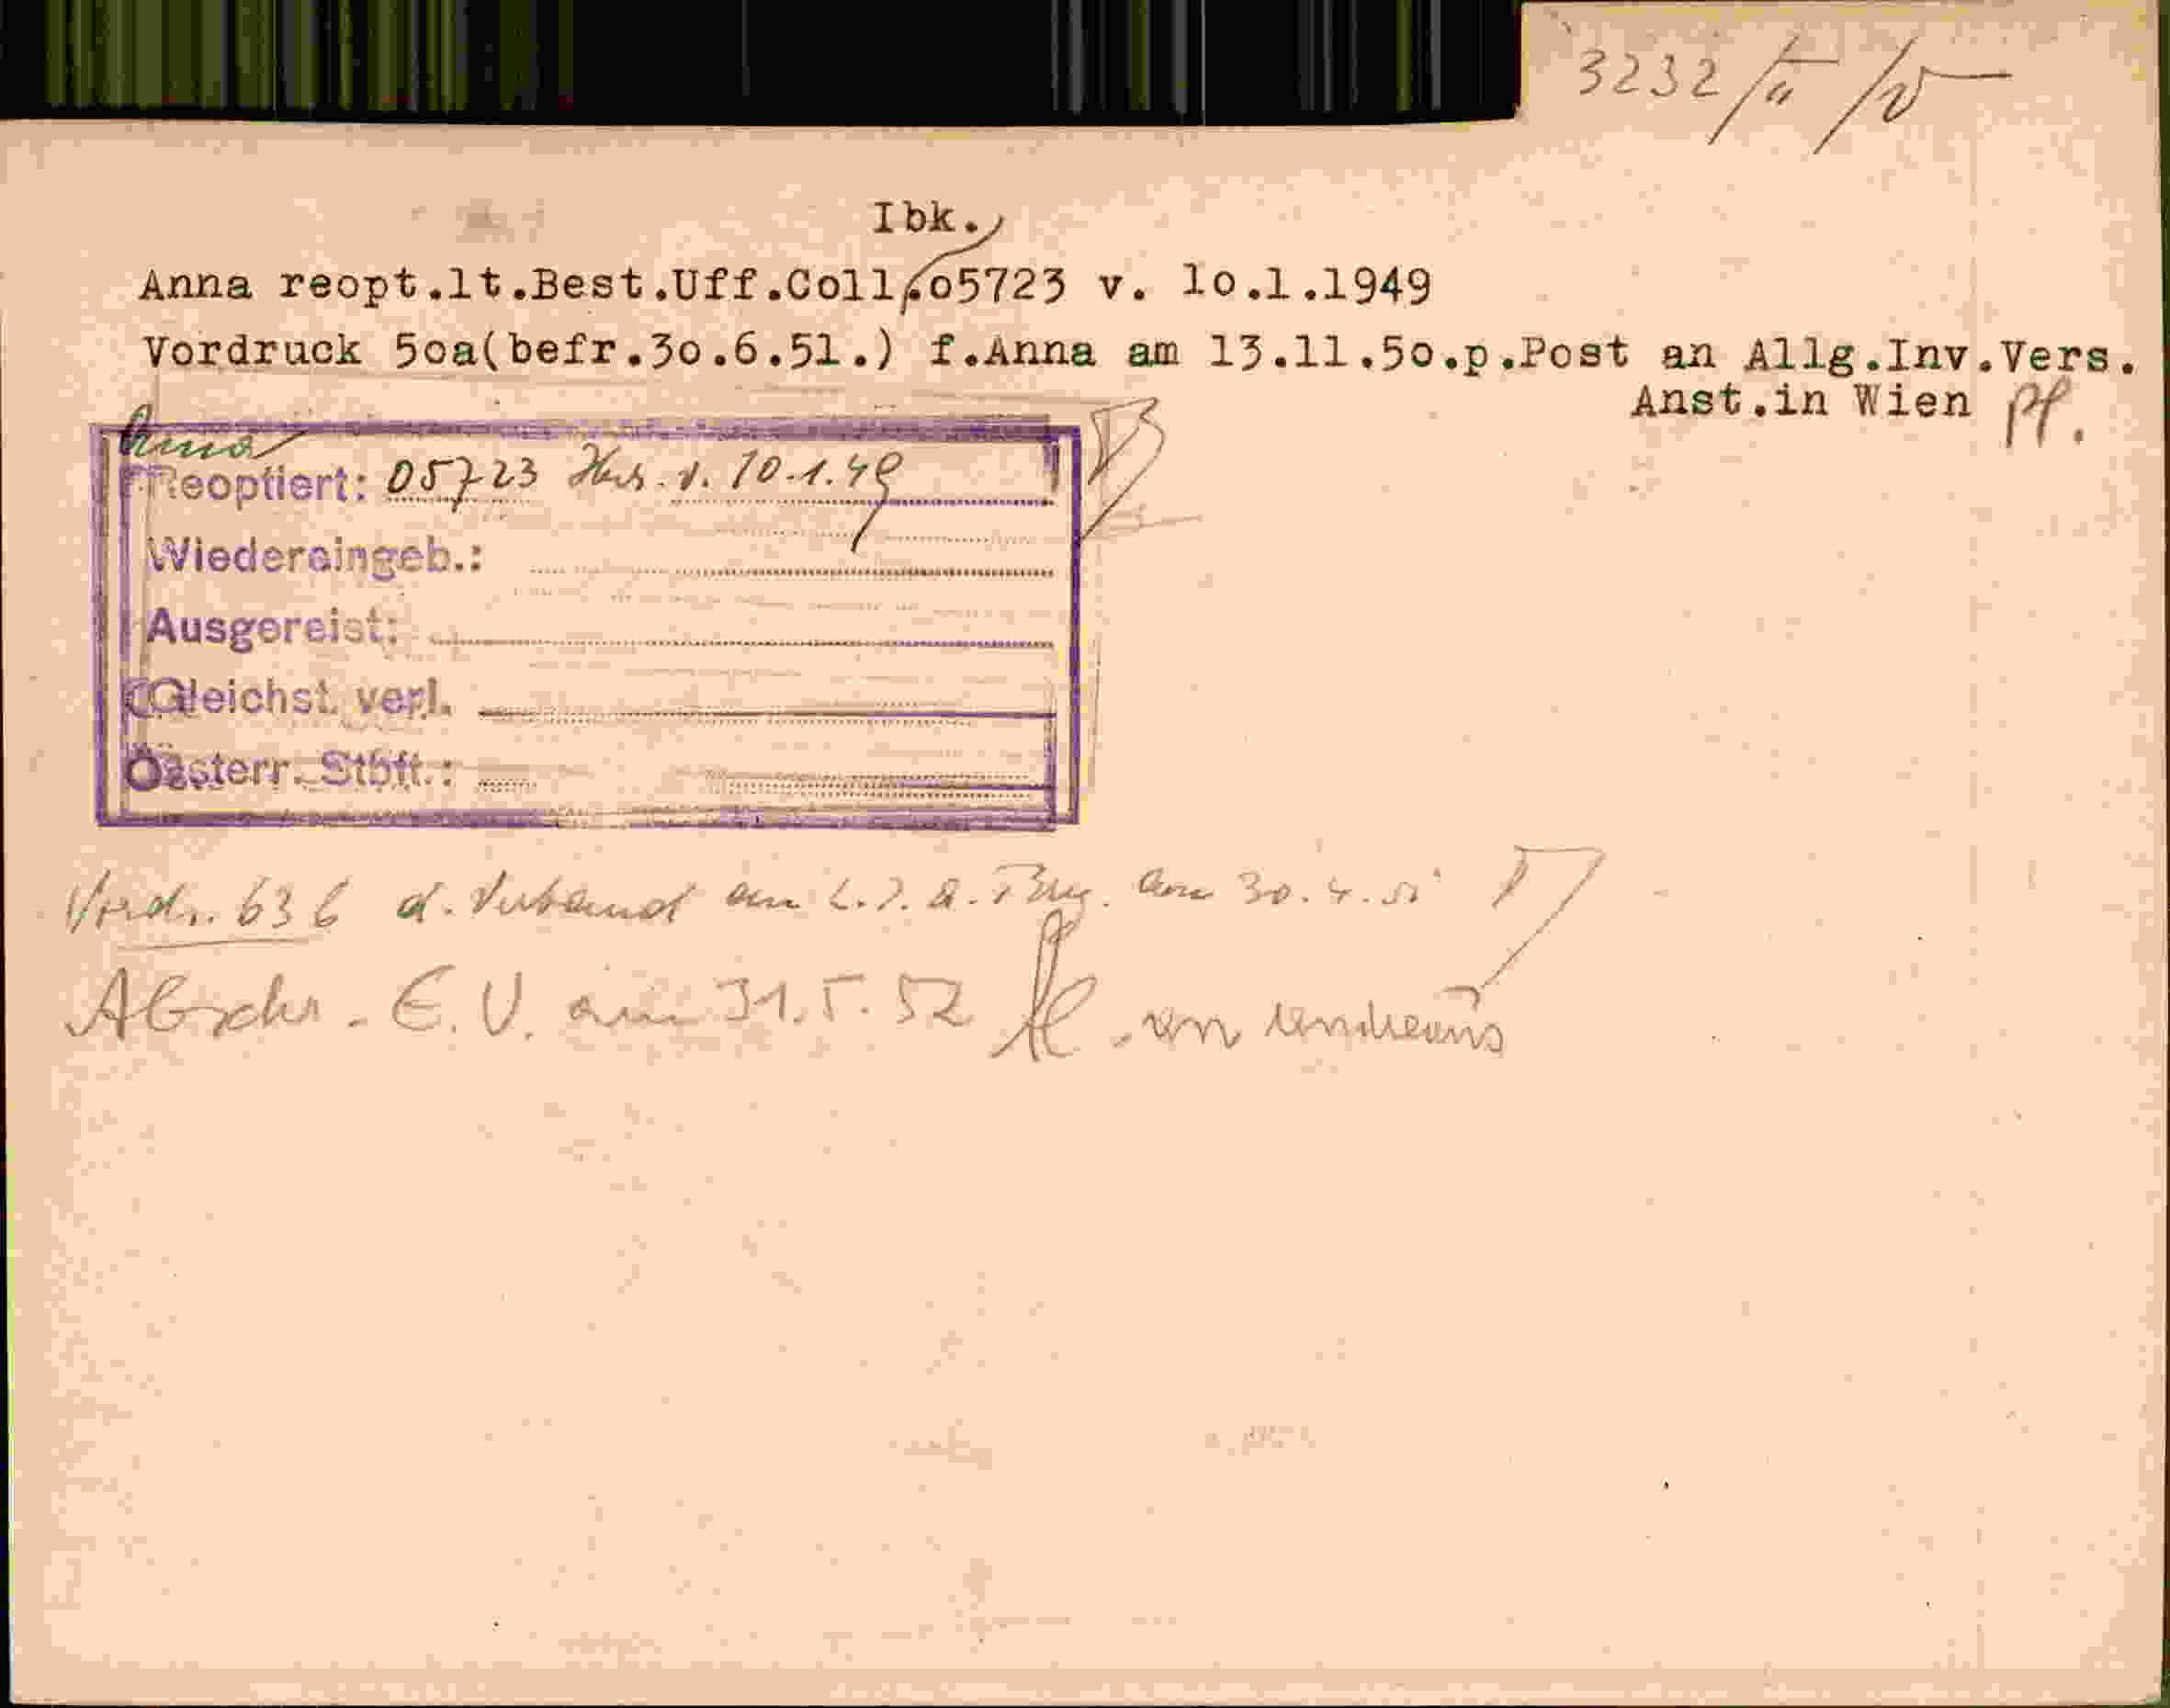 3232
Ibk.
Anna reopt.lt.Best.Uff.Coll.o5723 v. lo.1.1949
Vordruck 5oa(befr.3o.6.51.) f.Anna am 13.11.5o.p.Post an Allg.Inv.Vers.
Anst.in Wien
Anna
Reoptiert: 05723 v. 10.1.49
Wiedereingeb.:
Ausgereist:
Gleichst. verl.
Österr. Stbft.:
Vordr. 636 d. Verband am 30.4.51
Abschr. E.V. am 31.5.52